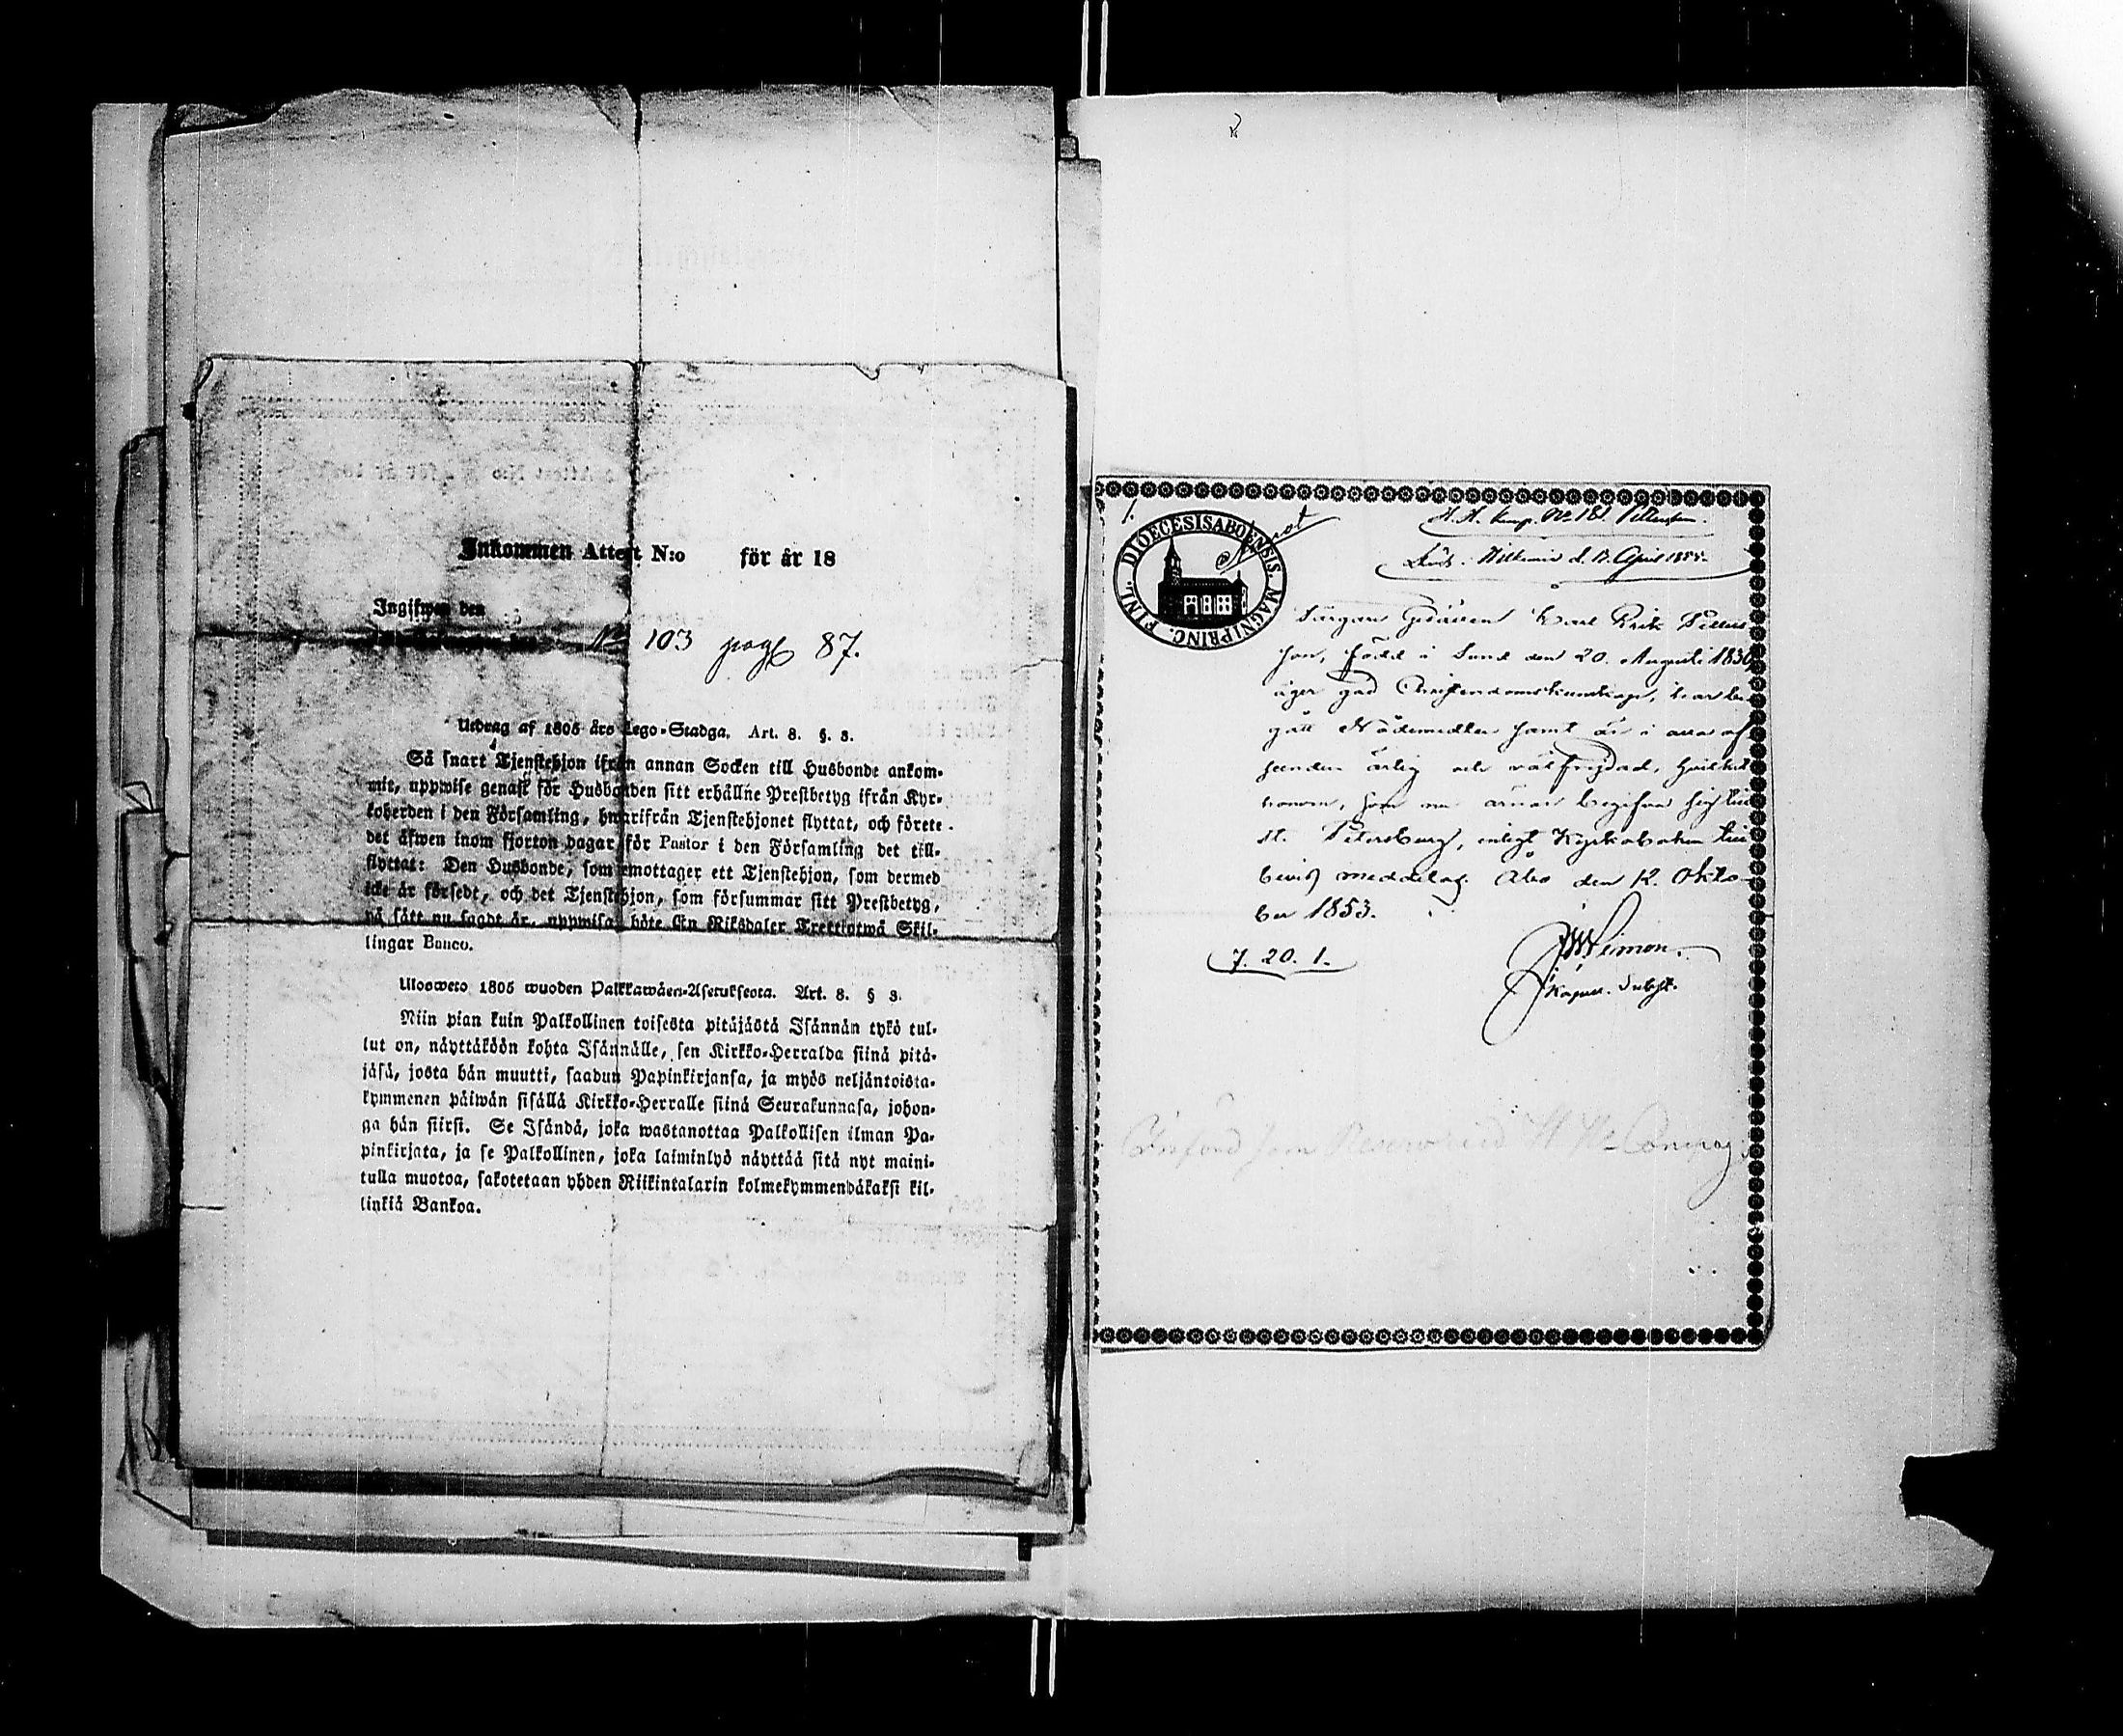 Inkommen Attest N:o för år 18
Ingifwen den
No 103 pag 87.
Utdrag af 1805 års Lego-Stadga. Art. 8. §. 3.
Så snart Tjenstehjon ifrån annan Socken till Husbonde ankom-
mit, uppwise genast för Husbonden sitt erhållne Prestbetyg ifrån Kyr-
koherden i den Församling, hwarifrån Tjenstehjonet flyttat, och förete
det äfwen inom fjorton dagar för Pastor i den Församling det till-
flyttat: Den Husbonde, som emottager ett Tjenstehjon, som dermed
icke är försedt, och det Tjenstehjon, som försummar sitt Prestbetyg,
på sätt nu sagdt är, uppwisa, böte En Riksdaler Trettiotwå Skil-
lingar Banco.
Ulosweto 1805 wuoden Palkkawäen-Asetuksesta. Art. 8. § 3.
Niin pian kuin Palkollinen toisesta pitäjästä Isännän tykö tul-
lut on, näyttäköön kohta Isännälle, sen Kirkko-Herralda siinä pitä-
jäsä, josta hän muutti, saadun Papinkirjansa, ja myös neljäntoista-
kymmenen päiwän sisällä Kirkko-Herralle siinä Seurakunnasa, johon-
ga hän siirsi. Se Isändä, joka wastanottaa Palkollisen ilman Pa-
pinkirjata, ja se Palkollinen, joka laiminlyö näyttää sitä nyt maini-
tulla muotoa, sakotetaan yhden Riikintalarin kolmekymmendäkaksi kil-
linkiä Bankoa.
1.
FINL. DIOECESIS ABOENSIS. MAGNI PRINC.
No 181.
d. 12 April 1855.
Karl Erik Petters-
son, född i Sund den 20. Augusti 1830,
äger god Christendomskunskap, har be-
gått Nådemedlen samt är i
seenden ärlig och välfrejdad, hvilket
honom, som nu ärnar begifva sig till
St. Petersburg, enligt Kyrkoboken till
bevis meddelas. Åbo den 12. Okto-
ber 1853.
7. 20. 1.
Kapell.
Införd som